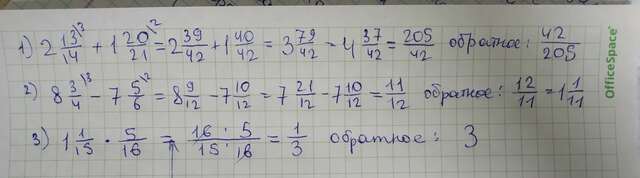 1) 2 13/14 \3 + 1 20/21 \2 = 2 39/42 + 1 40/42 = 3 79/42 - 4 37/42 = 205/42 обратное: 42/205
2) 8 3/4 \3 - 7 5/6 \2 = 8 9/12 - 7 10/12 = 7 21/12 - 7 10/12 = 11/12 обратное: 12/11 = 1 1/11
3) 1 1/15 · 5/16 = 16 · 5/15 · 16 = 1/3 обратное: 3
OfficeSpace®